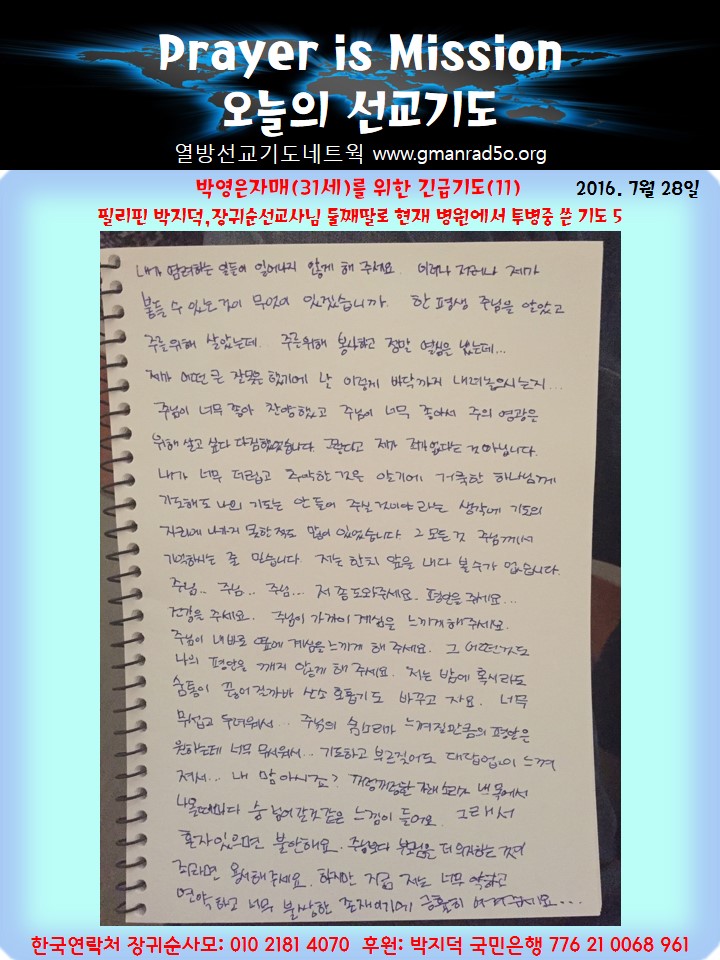 Prayer is Mission
오늘의 선교기도
열방선교기도네트웍 www.gmanrad5o.org
박영은자매(31세)를 위한 긴급기도(11) 2016. 7월 28일
필리핀 박지덕,장귀순선교사님 둘째딸로 현재 병원에서 투병중 쓴 기도 5
내가 염려하는 일들이 일어나지 않게 해 주세요. 이러나 저러나 제가
붙들 수 있는 것이 무엇이 있겠습니까. 한평생 주님을 알았고
주를위해 살았는데. 주를위해 봉사하고 정말 열심을 냈는데...
제가 어떤 큰 잘못을 했기에 난 이렇게 바닥까지 내려놓으시는지...
주님이 너무 좋아 찬양했고 주님이 너무 좋아서 주의 영광을
위해 살고 싶다 다짐했었습니다. 그렇다고 제가 죄가 없다는 것 아닙니다.
내가 너무 더럽고 추악한 것을 알기에 거룩한 하나님께
기도해도 나의 기도는 안 들어 주실 것이야 라는 생각에 기도의
자리에 나가지 못한적도 많이 있었습니다. 그 모든것 주님께서
기억하시는 줄 믿습니다. 저는 한치 앞을 내다 볼수가 없습니다.
주님.. 주님.. 주님... 저 좀 도와주세요. 평안을 주세요...
건강을 주세요. 주님이 가까이 계심을 느끼게 해 주세요.
주님이 내 바로 옆에 계심을 느끼게 해 주세요. 그 어떤것도
나의 평안을 깨지 않게 해 주세요. 저는 밤에 혹시라도
숨통이 끊어질까봐 산소 호흡기도 바꾸고 자요. 너무
무섭고 두려워서... 주님의 숨소리마 느껴질만큼의 평안을
원하는데 너무 무서워서... 기도하고 부르짖어도 대답없이 느껴
져서... 내 맘 아시죠? 가래소리가 내 목에서
나올때마다 숨 넘어갈것같은 느낌이 들어요. 그래서
혼자있으면 불안해요. 주님보다 부모님을 더 의지하는 것이
죄라면 용서해 주세요. 하지만 지금 저는 너무 약하고
연약하고 너무 불쌍한 존재이기에 긍휼히 여겨주세요...
한국연락처 장귀순사모: 010 2181 4070 후원: 박지덕 국민은행 776 21 0068 961